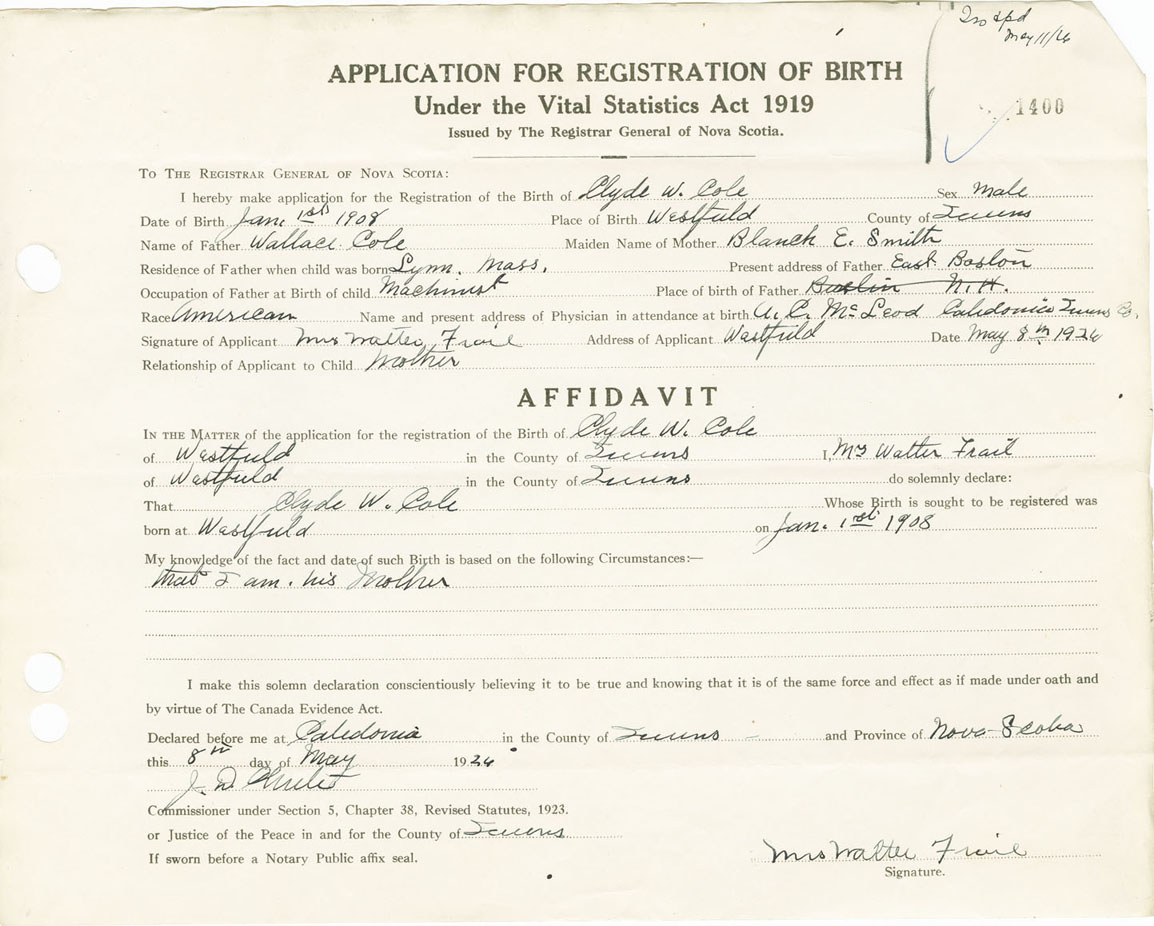 May 11/26
1400
APPLICATION FOR REGISTRATION OF BIRTH
Under the Vital Statistics Act 1919
Issued by The Registrar General of Nova Scotia.
TO THE REGISTRAR GENERAL OF NOVA SCOTIA:
I hereby make application for the Registration of the Birth of Clyde W. Cole Sex Male
Date of Birth Jan. 1st 1908 Place of Birth Westfield County of Queens
Name of Father Wallace Cole Maiden Name of Mother Blanch E. Smith
Residence of Father when child was born Lynn. Mass. Present address of Father East Boston
Occupation of Father at Birth of child Machinist Place of birth of Father Boston N.H.
Race American Name and present address of Physician in attendance at birth A. C. McLeod Caledonia Queens Co.
Signature of Applicant Mrs Walter Frail Address of Applicant Westfield Date May 8th 1926
Relationship of Applicant to Child Mother
AFFIDAVIT
IN THE MATTER of the application for the registration of the Birth of Clyde W. Cole
of Westfield in the County of Queens I, Mrs Walter Frail
of Westfield in the County of Queens do solemnly declare:
That Clyde W. Cole Whose Birth is sought to be registered was
born at Westfield on Jan. 1st 1908
My knowledge of the fact and date of such Birth is based on the following Circumstances:—
that I am. his Mother
I make this solemn declaration conscientiously believing it to be true and knowing that it is of the same force and effect as if made under oath and
by virtue of The Canada Evidence Act.
Declared before me at Caledonia in the County of Queens and Province of Nova Scotia
this 8th day of May 1926
J. D.
Commissioner under Section 5, Chapter 38, Revised Statutes, 1923.
or Justice of the Peace in and for the County of Queens
If sworn before a Notary Public affix seal.
Mrs Walter Frail
Signature.